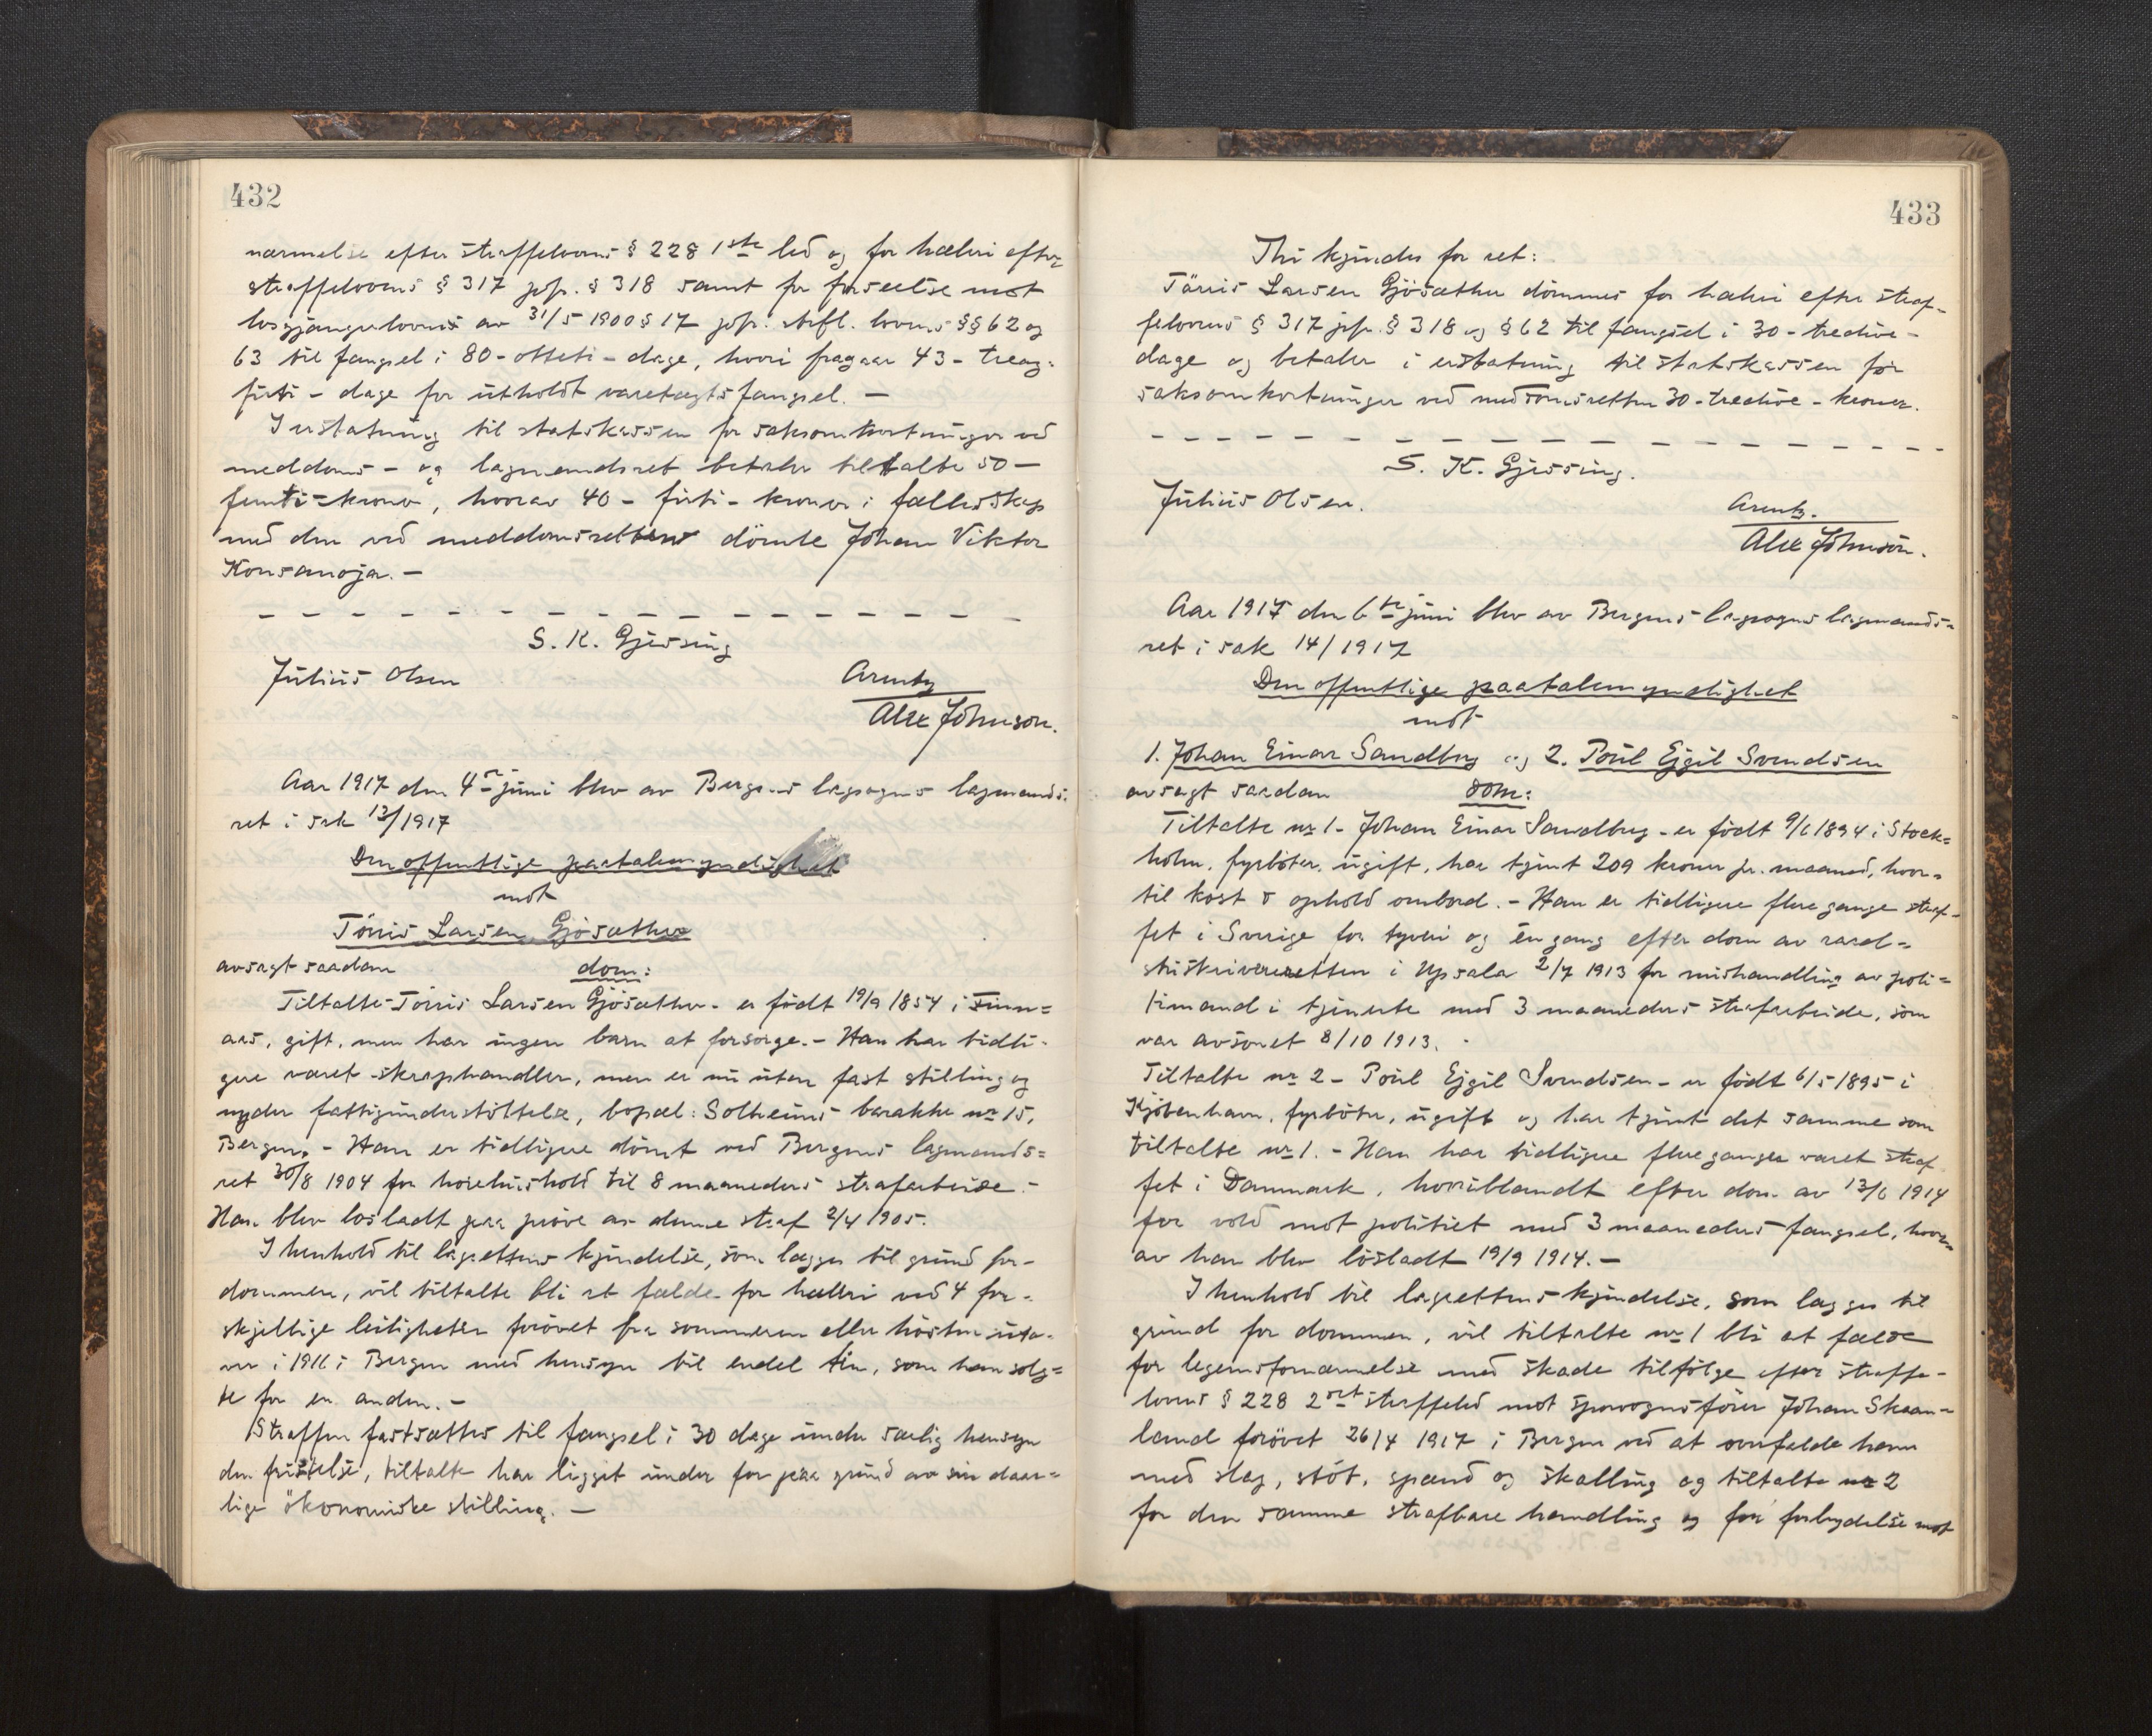 432
nærmelse efter straffelovens § 228 1ste led og for hæleri efter
straffelovens § 317 jvfr. § 318 samt for forseelse mot
løsgjængerlovens av 31/5 1900 § 17 jvfr. strfl. lovens §§ 62 og
63 til fængsel i 80-otteti-dage, hvori fragaar 43-treog-
firti-dage for utholdt varetægtsfængsel. —
I erstatning til statskassen for saksomkostninger ved
meddoms- og lagmandsret betaler tiltalte 50-
femti-kroner, hvorav 40-firti-kroner i fællesskap
med den ved meddomsretten dömte Johan Viktor
Konsanoja. —
S. K. Gjessing
Julius Olsen
Arentz
Alex Johnson.
Aar 1917 den 4de juni blev av Bergens lagsogns lagmands-
ret i sak 13/1917
Den offentlige paatalemyndighet
mot
Törris Larsen Gjösæther
avsagt saadan dom:
Tiltalte-Törris Larsen Gjösæther- er födt 19/9 1854 i Finn=
aas, gift, men har ingen barn at forsørge. - Han har tidli-
gere været skraphandler, men er nu uten fast stilling og
nyder fattigunderstöttelse, bopæl: Solheims barakke nr 15,
Bergen. - Han er tidligere dömt ved Bergens lagmands=
ret 30/8 1904 for horehushold til 8 maaneders strafarbeide. -
Han blev løsladt paa pröve av denne straf 2/4 1905.
I henhold til lagrettens kjendelse, som lægges til grund for
dommen, vil tiltalte bli at fælde for hæleri ved 4 for-
skjellige leiligheter forövet fra sommeren eller hösten uto-
ver i 1916 i Bergen med hensyn til endel tin, som han solg=
te for en anden. -
Straffen fastsættes til fængsel i 30 dage under særlig hensyn
den fristelse, tiltalte har ligget under for paa grund av sin daar=
lige ökonomiske stilling. —
433
Thi kjendes for ret:
Törris Larsen Gjösæther dömmes for hæleri efter straf-
felovens § 317 jvfr. § 318 og § 62 til fængsel i 30-tredive-
dage og betaler i erstatning til statskassen for
saksomkostninger ved meddomsretten 30-tredive-kroner.
S. K. Gjessing.
Julius Olsen.
Arentz.
Alex Johnson.
Aar 1917 den 6te juni blev av Bergens lagsogns lagmands=
ret i sak 14/1917
Den offentlige paatalemyndighet
mot
1. Johan Einar Sandberg og 2. Poul Ejgil Svendsen
avsagt saadan dom:
Tiltalte nr 1 - Johan Einar Sandberg - er födt 9/6 1894 i Stock=
holm, fyrböter, ugift, har tjent 209 kroner pr. maaned, hvor-
til kost & ophold ombord. - Han er tidligere flere gange straf-
fet i Sverige for tyveri og én gang efter dom av raad-
stuskriverretten i Upsala 2/7 1913 for mishandling av poli=
timand i tjeneste med 3 maaneders strafarbeide, som
var avsonet 8/10 1913. -
Tiltalte nr 2 - Poul Ejgil Svendsen - er födt 6/5 1895 i
Kjöbenhavn, fyrböter, ugift og har tjent det samme som
tiltalte nr 1. - Han har tidligere flere ganger været straf
fet i Danmark, hvoriblandt efter dom av 13/6 1914
for vold mot politiet med 3 maaneders fængsel, hvor-
av han blev lösladt 19/9 1914. —
I henhold til lagrettens kjendelse, som lægges til
grund for dommen, vil tiltalte nr 1 bli at fælde
for legemsfornærmelse med skade tilfölge efter straffe-
lovens § 228 2det straffeled mot sporvognsförer Johan Skaan-
land forövet 26/4 1917 i Bergen ved at overfalde ham
med slag, stöt, spænd og skalling og tiltalte nr 2
for den samme strafbare handling og for forbrydelse mot